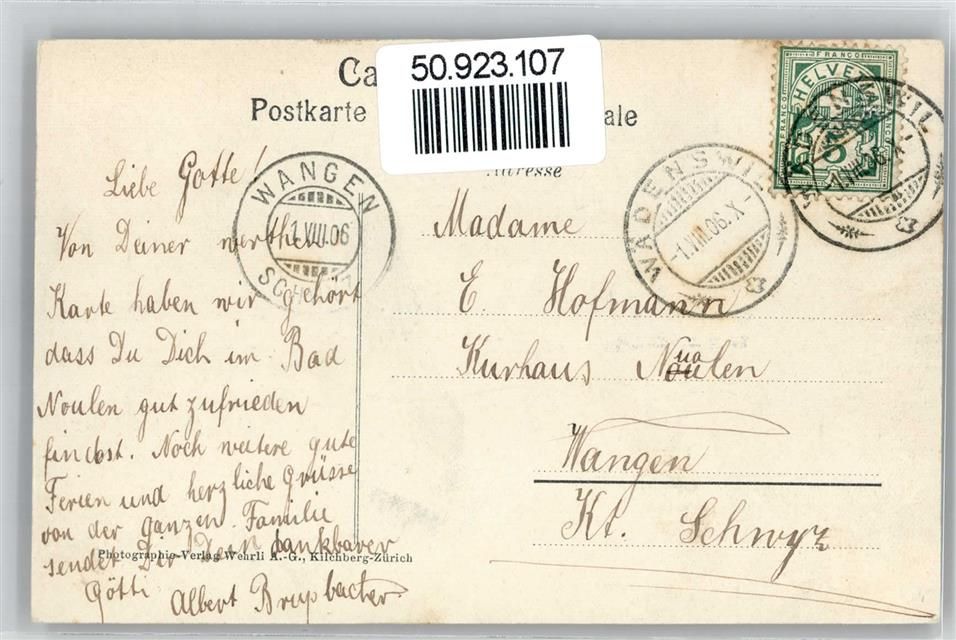 50.923.107
Ca
Postkarte
ale
Adresse
FRANCO
HELVETIA
FRANCO
5
WÄDENSWIL
-1.VIII.06.X-
WÄDENSWIL
-1.VIII.06.X-
WANGEN
1.VIII.06
Liebe Gotte!
Von Deiner werthen
Karte haben wir gehört
dass Du Dich im Bad
Noulen gut zufrieden
findest. Noch weitere gute
Ferien und herzliche Grüsse
von der ganzen Familie
sendet Dir Dein dankbarer
Götti
Albert Brupbacher
Madame
E. Hofmann
Kurhaus Nuolen
Wangen
Kt. Schwyz
Photographie-Verlag Wehrli A.-G., Kilchberg-Zürich